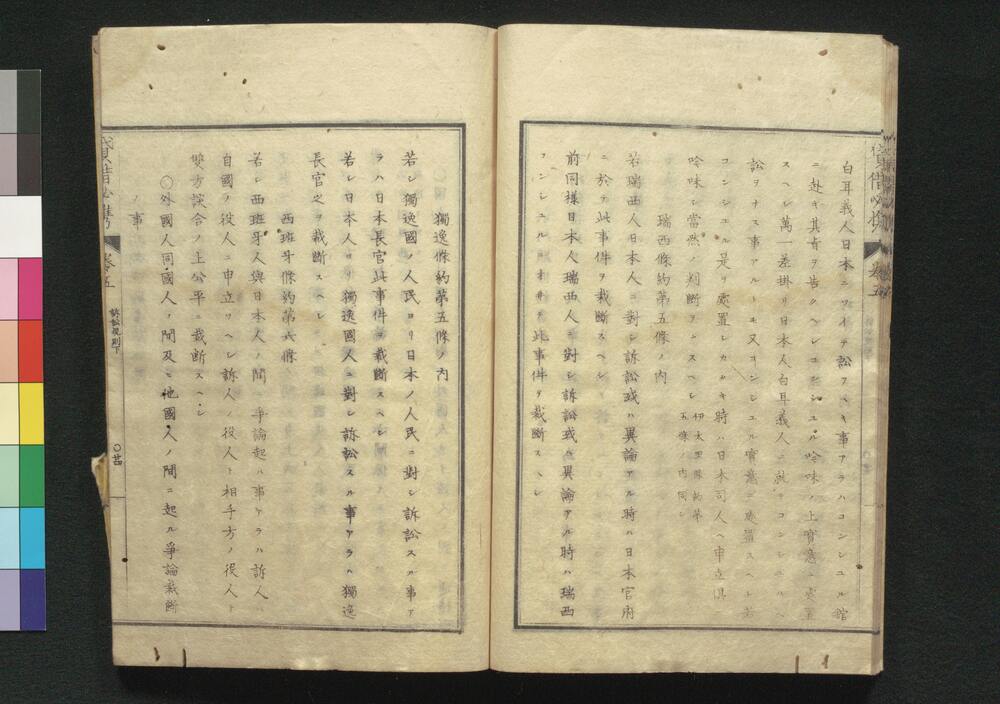 白耳義人日本ニツイテ訟フヘキ事アラハコンシユル館
ニ赴キ其旨ヲ告クヘシコンシユル吟味ノ上實意ニ處置
スヘシ萬一差掛リ日本人白耳義人ニ就テコンシユルヘ
訟ヲナス事アルトモ又コンシユル實意ニ處置スヘト若
コンシユル是ヲ處置シカタキ時ハ日本司人ヘ申立倶ニ
吟味シ當然ノ判斷ヲナスヘシ 伊太里條約第五條ノ内同シ
瑞西條約第五條ノ内
若瑞西人日本人ニ對シ訴訟或ハ異論アル時ハ日本官府
ニ於テ此事件ヲ裁斷スヘシ
前同樣日本人瑞西人ニ對シ訴訟或ハ異論アル時ハ瑞西
コンシユル此事件ヲ裁斷スヘシ
獨逸條約第五條ノ内
若シ獨逸國ノ人民ヨリ日本ノ人民ニ對シ訴訟スル事ア
ラハ日本長官此事件ヲ裁斷スヘシ
若シ日本人ヨリ獨逸國人ニ對シ訴訟スル事アラハ獨逸
長官之ヲ裁斷スヘシ
西班牙條約第六條
若シ西班牙人與日本人ノ間ニ爭論起ル事アラハ訴人ハ
自國ノ役人ニ申立ツヘシ訴人ノ役人ト相手方ノ役人ト
雙方談合ノ上公平ニ裁斷スヘシ
○外國人同國人ノ間及ヒ他國人ノ間ニ起ル爭論裁斷
ノ事
貸借必携 卷五 訴訟規則下 ○廿四